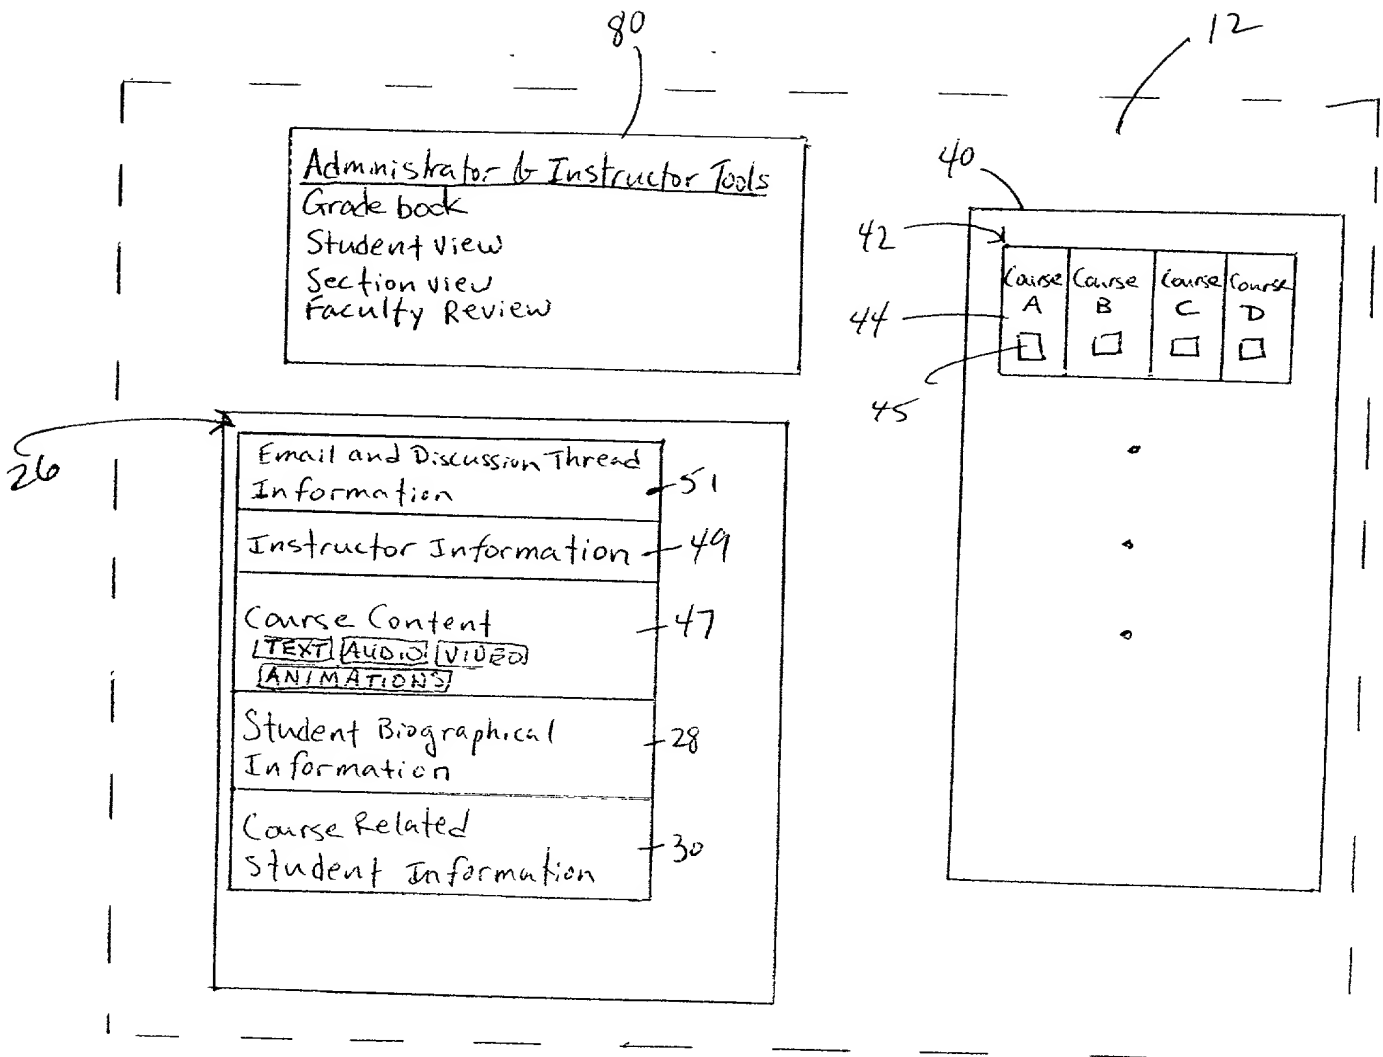 80
12
Administrator & Instructor Tools
Grade book
Student view
Section view
Faculty Review
40
42
Course Course Course Course
A B C D
44
45
26
Email and Discussion Thread
Information
51
Instructor Information
49
Course Content
47
TEXT AUDIO VIDEO
ANIMATIONS
Student Biographical
Information
28
Course Related
Student Information
30